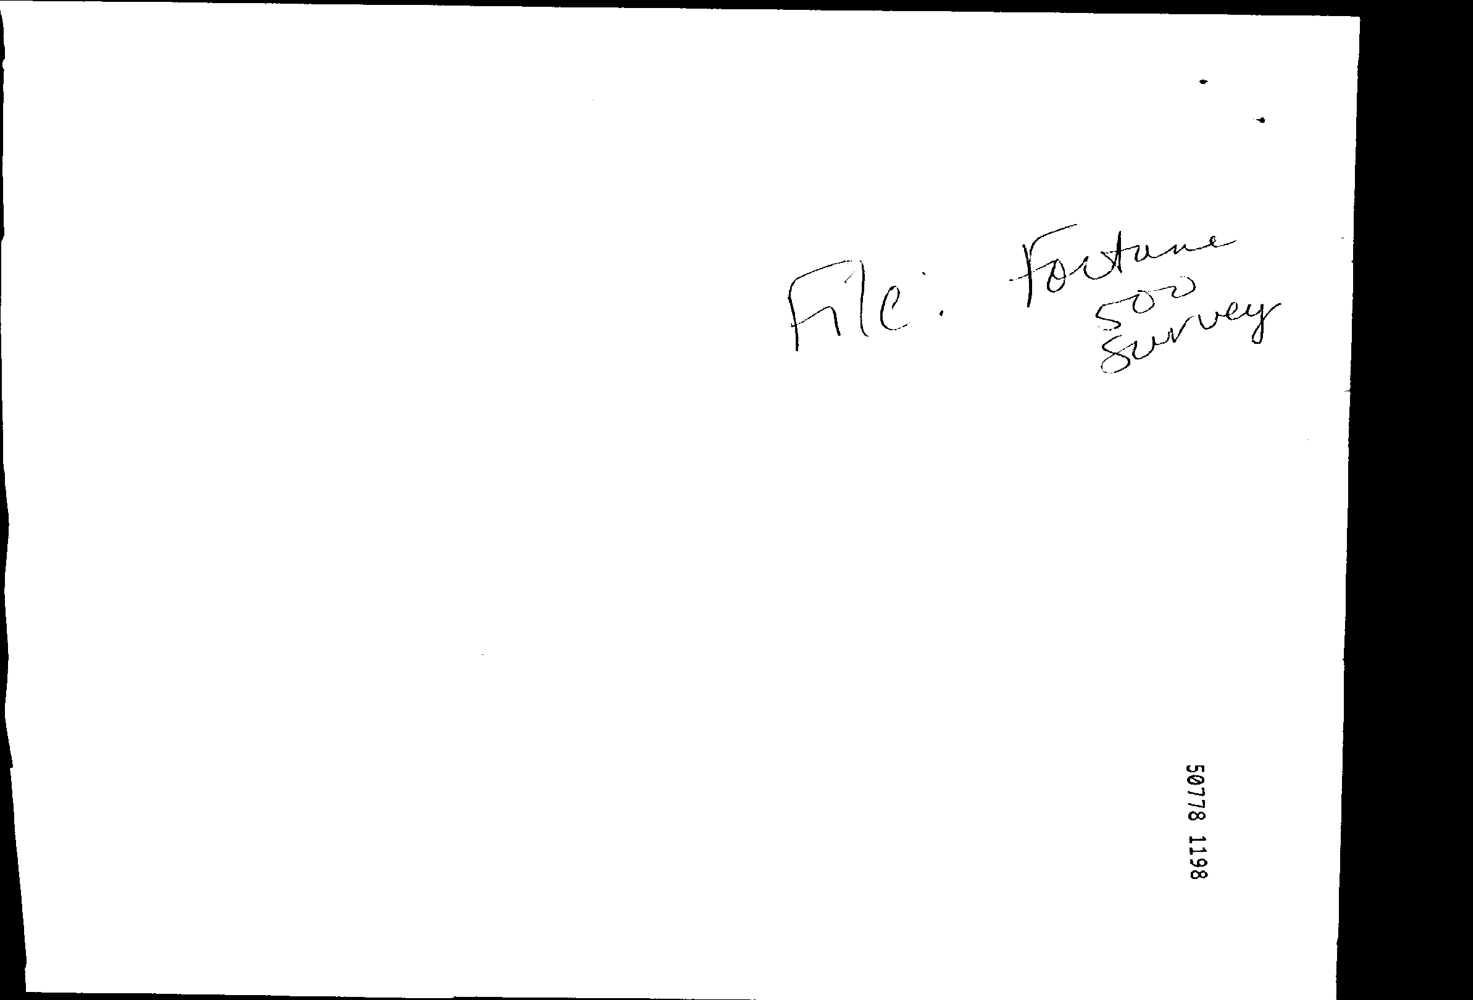 File: Fortune
500
Survey
50778 1198